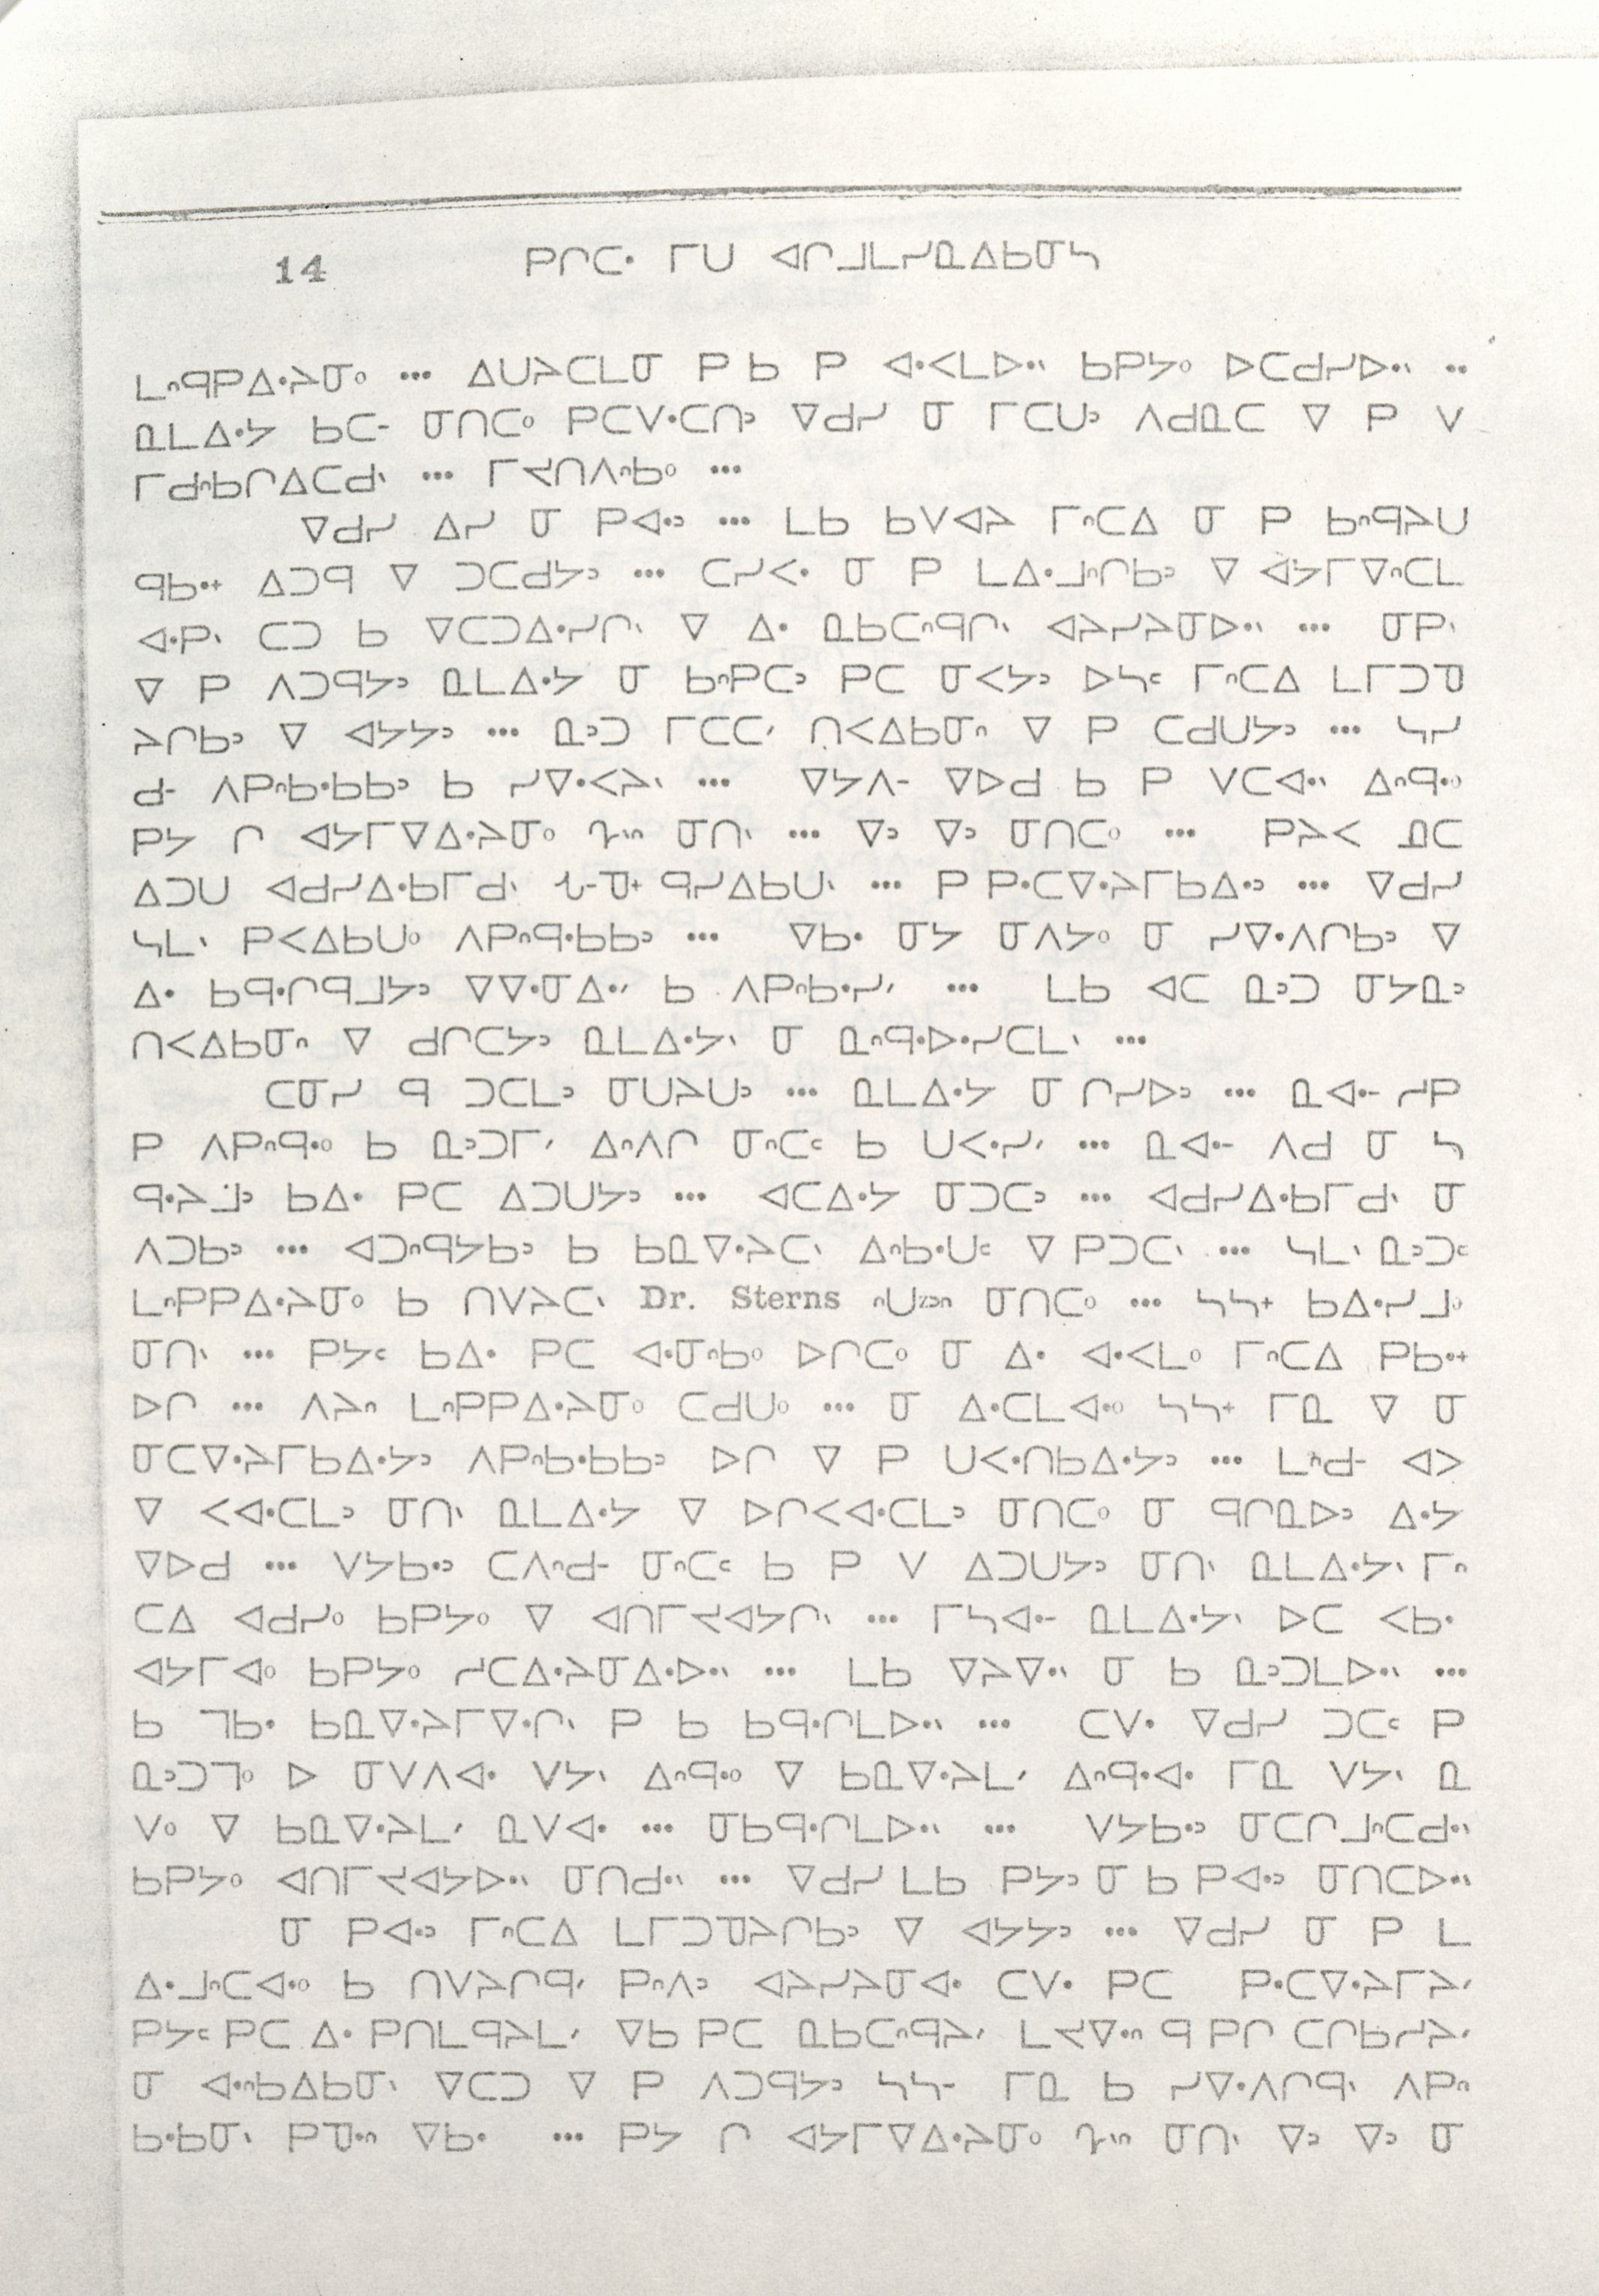 14 ᑭᒋᑕᐧ ᒥᑌ ᐊᒋᒧᒪᓯᓇᐃᑲᓂᓴ
ᒪᐢᑫᑭᐃᐧᔨᓂᐤ ... ᐃᑌᔨᑕᒪᓂ ᑭ ᑲ ᑭ ᐊᐧᐸᒪᐅᐧᐠ ᑲᑭᔭᐤ ᐅᑕᑯᓯᐅᐧᐠ ..
ᓇᒪᐃᐧᔭ ᑲᑕ- ᓂᑎᑕᐤ ᑭᑕᐯᐧᑕᑎᐣ ᐁᑯᓯ ᓂ ᒥᑕᑌᐣ ᐱᑯᓇᑕ ᐁ ᑭ ᐯ
ᒥᑯᐢᑲᒋᐃᑕᑯᐠ ... ᒥᔪᑎᐱᐢᑲᐤ ...
ᐁᑯᓯ ᐃᓯ ᓂ ᑭᐊᐧᐣ ... ᒪᑲ ᑲᐯᐊᔨ ᒥᐢᑕᐃ ᓂ ᑭ ᑲᐢᑫᔨᑌ
ᑫᑲᐧᐩ ᐃᑐᑫ ᐁ ᑐᑕᑯᔭᐣ ... ᑕᓯᐸᐧ ᓂ ᑭ ᒪᐃᐧᒧᐢᒋᑲᐣ ᐁ ᐊᔭᒥᐁᐢᑕᒪ
ᐊᐧᑭᐠ ᑕᑐ ᑲ ᐁᑕᑐᐃᐧᓯᒋᐠ ᐁ ᐃᐧ ᓇᑲᑕᐢᑫᒋᐠ ᐊᔨᓯᔨᓂᐅᐧᐠ ... ᓂᑭᐠ
ᐁ ᑭ ᐱᑐᑫᔭᐣ ᓇᒪᐃᐧᔭ ᓂ ᑲᐢᑭᑕᐣ ᑭᑕ ᓂᐸᔭᐣ ᐅᓴᒼ ᒥᐢᑕᐃ ᒪᒥᑐᓀ
ᔨᒋᑲᐣ ᐁ ᐊᔭᔭᐣ ... ᓇᐣᑐ ᒥᑕᑕᐟ ᑎᐸᐃᑲᓂᐢ ᐁ ᑭ ᑕᑯᑌᔭᐣ ... ᓴᓯ
ᑯ- ᐱᑭᐢᑲᐧᑲᑲᐣ ᑲ ᓯᐁᐧᐸᔨᐠ ... ᐁᔭᐱ- ᐁᐅᑯ ᑲ ᑭ ᐯᑕᐊᐧᐠ ᐃᐢᑫᐧᐤ
ᑭᔭ ᒋ ᐊᔭᒥᐁᐃᐧᔨᓂᐤ ᓂᑎᐠ ... ᐁᐣ ᐁᐣ ᓂᑎᑕᐤ ... ᑭᔨᐸ ᓄᑕ
ᐃᑐᑌ ᐊᑯᓯᐃᐧᑲᒥᑯᐠ ᑫᓯᐃᑲᑌᐠ ... ᑭ ᑭᐧᑕᐁᐧᔨᒥᑲᐃᐧᐣ ... ᐁᑯᓯ
ᓴᒪᐠ ᑭᐸᐃᑲᑌᐤ ᐱᑭᐢᑫᐧᑲᑲᐣ ... ᐁᑲᐧ ᓂᔭ ᓂᐱᔭᐤ ᓂ ᓯᐁᐧᐱᒋᑲᐣ ᐁ
ᐃᐧ ᑲᑫᐧᒋᑫᒧᔭᐣ ᐁᐁᐧᓂᐃᐧᐟ ᑲ ᐱᑭᐢᑲᐧᓯᐟ ... ᒪᑲ ᐊᑕ ᓇᐣᑐ ᓂᔭᓇᐣ
ᑎᐸᐃᑲᓂᐢ ᐁ ᑯᒋᑕᔭᐣ ᓇᒪᐃᐧᔭᐠ ᓂ ᓇᐢᑫᐧᐅᐧᓯᑕᒪᐠ ...
ᑕᓂᓯ ᑫ ᑐᑕᒪᐣ ᓂᑌᔨᑌᐣ ... ᓇᒪᐃᐧᔭ ᓂ ᒋᓯᐅᐣ ... ᓇᐊᐧ- ᓰᑭ
ᑭ ᐱᑭᐢᑫᐧᐤ ᑲ ᓇᐣᑐᒥᐟ ᐃᐢᐱᒋ ᓂᐢᑕᒼ ᑲ ᑌᐸᐧᓯᐟ ... ᓇᐊᐧ- ᐱᑯ ᓂ ᓴ
ᑫᐧᔨᒨᐣ ᑲᐃᐧ ᑭᑕ ᐃᑐᑌᔭᐣ ... ᐊᑕᐃᐧᔭ ᓂᑐᑕᐣ ... ᐊᑯᓯᐃᐧᑲᒥᑯᐠ ᓂ
ᐱᑐᑲᐣ ... ᐊᑐᐢᑫᔭᑲᐣ ᑲ ᑲᓇᐁᐧᔨᑕᐠ ᐃᐢᑲᐧᑌᒼ ᐁ ᑭᑐᑕᐠ ... ᓴᒪᐠ ᓇᐣᑐᒼ
ᒪᐢᑭᑭᐃᐧᔨᓂᐤ ᑲ ᑎᐯᔨᑕᐠ Dr. Sterns ᐢᑌᕒᐣᐢ ᓂᑎᑕᐤ ... ᓴᓴᐩ ᑲᐃᐧᓯᒧᐤ
ᓂᑎᐠ ... ᑭᔭᒼ ᑲᐃᐧ ᑭᑕ ᐊᐧᓂᐢᑲᐤ ᐅᒋᑕᐤ ᓂ ᐃᐧ ᐊᐧᐸᒪᐤ ᒥᐢᑕᐃ ᑭᑲᐧᐩ
ᐅᒋ ... ᐱᔨᐢ ᒪᐢᑭᑭᐃᐧᔨᓂᐤ ᑕᑯᑌᐤ ... ᓂ ᐃᐧᑕᒪᐊᐧᐤ ᓴᓴᐩ ᒥᓇ ᐁ ᓂ
ᓂᑕᐁᐧᔨᒥᑲᐃᐧᔭᐣ ᐱᑭᐢᑲᐧᑲᑲᐣ ᐅᒋ ᐁ ᑭ ᑌᐸᐧᑎᑲᐃᐧᔭᐣ ... ᒪᐢᑯ- ᐊᐳ
ᐁ ᐸᐊᐧᑕᒪᐣ ᓂᑎᐠ ᓇᒪᐃᐧᔭ ᐁ ᐅᒋᐸᐊᐧᑕᒪᐣ ᓂᑎᑕᐤ ᓂ ᑫᒋᓇᐅᐣ ᐃᐧᔭ
ᐁᐅᑯ ... ᐯᔭᑲᐧᐣ ᑕᐱᐢᑯ- ᓂᐢᑕᒼ ᑲ ᑭ ᐯ ᐃᑐᑌᔭᐣ ᓂᑎᐠ ᓇᒪᐃᐧᔭᐠ ᒥᐢ
ᑕᐃ ᐊᑯᓯᐤ ᑲᑭᔭᐤ ᐁ ᐊᑎᒥᔪᐊᔭᒋᐠ ... ᒥᓴᐊᐧ- ᓇᒪᐃᐧᔭᐠ ᐅᑕ ᐸᑲᐧ
ᐊᔭᒥᐊᐤ ᑲᑭᔭᐤ ᓰᑕᐃᐧᔨᓂᐃᐧᐅᐧᐠ ... ᒪᑲ ᐁᔨᐁᐧᐠ ᓂ ᑲ ᓇᐣᑐᒪᐅᐧᐠ ...
ᑲ ᒣᑲᐧ ᑲᓇᐁᐧᔨᒥᐁᐧᒋᐠ ᑭ ᑲ ᑲᑫᐧᒋᒪᐅᐧᐠ ... ᑕᐯᐧ ᐁᑯᓯ ᑐᑕᒼ ᑭ
ᓇᐣᑐᒣᐤ ᐅ ᓂᐯᐱᐊᐧ ᐯᔭᐠ ᐃᐢᑫᐧᐤ ᐁ ᑲᓇᐁᐧᔨᒪᐟ ᐃᐢᑫᐧᐊᐧ ᒥᓇ ᐯᔭᐠ ᓇ
ᐯᐤ ᐁ ᑲᓇᐁᐧᔨᒪᐟ ᓇᐯᐊᐧ ... ᓂᑲᑫᐧᒋᒪᐅᐧᐠ ... ᐯᔭᑲᐧᐣ ᓂᑕᒋᒧᐢᑕᑯᐧᐠ
ᑲᑭᔭᐤ ᐊᑎᒥᔪᐊᔭᐅᐧᐠ ᓂᑎᑯᐧᐠ ... ᐁᑯᓯ ᒪᑲ ᑭᔭᐣ ᓂ ᑲ ᑭᐊᐧᐣ ᓂᑎᑕᐅᐧᐠ
ᓂ ᑭᐊᐧᐣ ᒥᐢᑕᐃ ᒪᒥᑐᓀᔨᒋᑲᐣ ᐁ ᐊᔭᔭᐣ ... ᐁᑯᓯ ᓂ ᑭ ᒪ
ᐃᐧᒧᐢᑕᐊᐧᐤ ᑲ ᑎᐯᔨᒋᑫᐟ ᑭᐢᐱᐣ ᐊᔨᓯᔨᓂᐊᐧ ᑕᐯᐧ ᑭᑕ ᑭᐧᑕᐁᐧᔨᒥᔨᐟ
ᑭᔭᒼ ᑭᑕ ᐃᐧ ᑭᑎᒪᑫᔨᒪᐟ ᐁᑲ ᑭᑕ ᓇᑲᑕᐢᑫᔨᐟ ᒪᔪᐁᐧᐢ ᑫ ᑭᒋ ᑕᒋᑲᓰᔨᐟ
ᓂ ᐊᐧᐢᑲᐃᑲᓂᐠ ᐁᑕᑐ ᐁ ᑭ ᐱᑐᑫᔭᐣ ᓴᓴ- ᒥᓇ ᑲ ᓯᐁᐧᐱᒋᑫᐠ ᐱᑭᐢ
ᑲᐧᑲᓂᐠ ᑭᓀᐧᐢ ᐁᑲᐧ ... ᑭᔭ ᒋ ᐊᔭᒥᐁᐃᐧᔨᓂᐤ ᓂᑎᐠ ᐁᐣ ᐁᐣ ᓂ